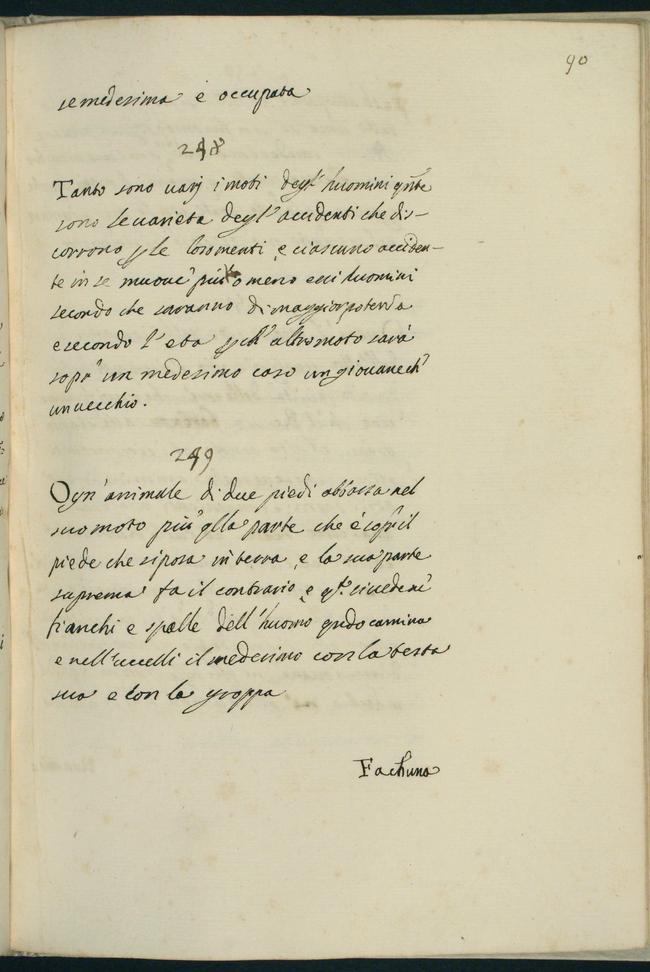 90
semedesima è occupata
248
Tanto sono varij i moti degl' huomini qnte
sono le varieta degl' accidenti che dis-
corrono p le loro menti, e ciascuno acciden-
te in se muoue più o meno essi huomini
secondo che saranno di maggior potenza
e secondo l' eta pch' altro moto sarà
sopr' un medesimo caso un giovane ch'
un vecchio.
249
Ogn' animale di due piedi abbassa nel
suo moto più qlla parte che è sopr' il
piede che si posa in terra, e la sua parte
suprema fa il contrario, e qto si vede ne'
fianchi e spalle dell' huomo qndo camina
e nell' uccelli il medesimo con la testa
sua e con la groppa
Fa ch' una